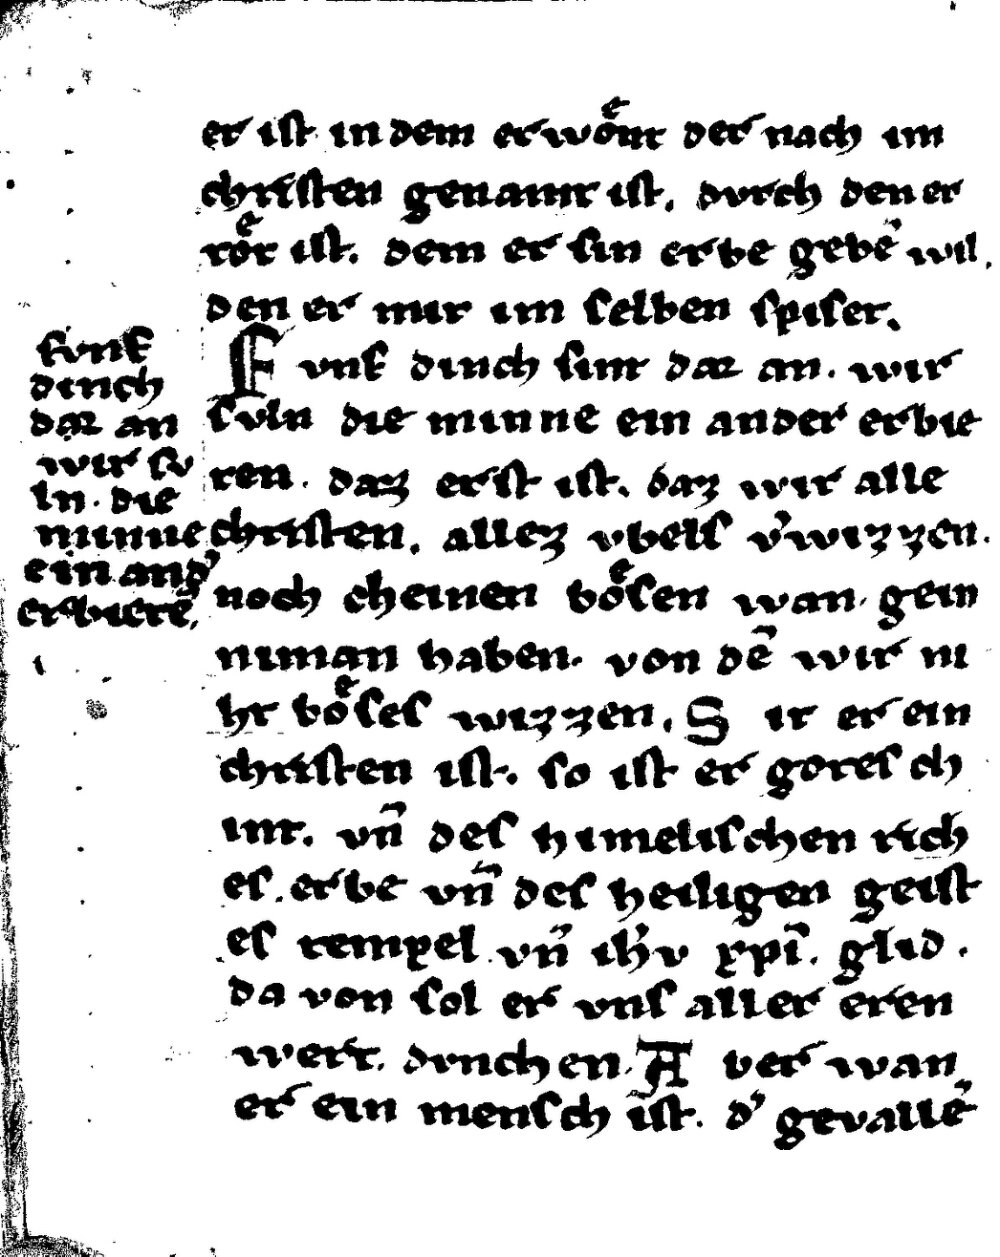 er ist in dem erwoͤmt der nach im
christen genamt ist. durch den er
toͤt ist. dem er sin erbe gebē wil.
den er mit im selben spiset.
Fvnf dinch sint daz an. wir
svln die minne ein ander erbie
ten. daz erst ist. daz wir alle
christen. allez vbels v'wizzen.
noch cheinen boͤsen wan. gein
niman haben. von dē wir ni
ht boͤses wizzen. S it er ein
christen ist. so ist er gotes ch
int. vn̄ des himelischen rich
es. erbe vn̄ des heiligen geist
es tempel. vn̄ ih'v xpi̅. glid.
da von sol er vns aller eren
wert. dvnchen. A ber wan
er ein mensch ist. d' gevallē
fvnf
dinch
daz an
wir sv
ln. die
minne
ein and'
erbietē.